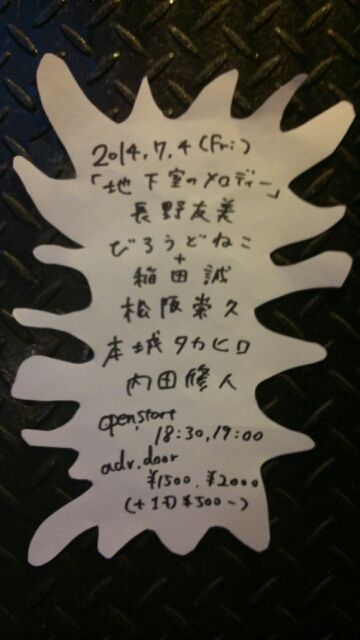 2014.7.4(Fri)
「地下室のメロディー」
長野友美
びろうどねこ
+
稲田誠
松阪崇久
本城タカヒロ
内田修人
open.start
18:30,19:00
adv.door
¥1500.¥2000
(+1D¥500-)